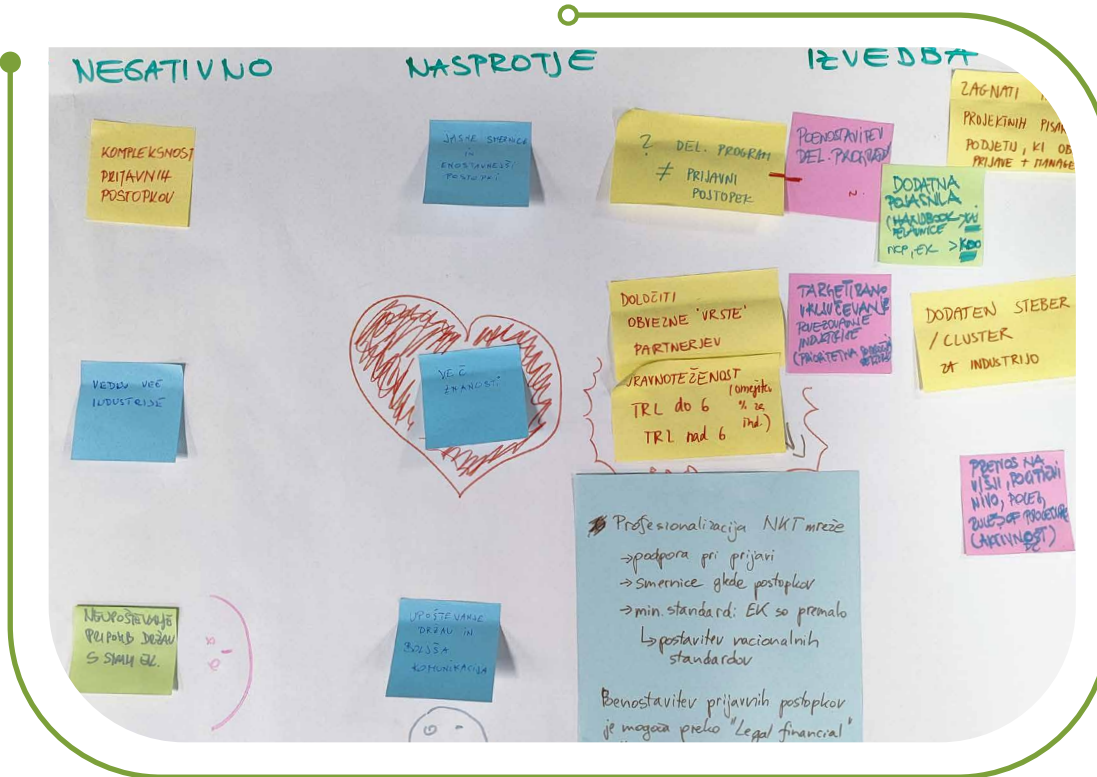 NEGATIVNO
NASPROTJE
IZVEDBA
KOMPLEKSNOST
PRIJAVNIH
POSTOPKOV
JASNE SMERNICE
in
ENOSTAVNEJŠI
POSTOPKI
? DEL. PROGRAM
≠ PRIJAVNI
POSTOPEK
POENOSTAVITEV
DEL. PROGRAMA
ZAGNATI
PROJEKTNIH
PODJETIJ, KI
PRIJAVE +
DODATNA
POJASNILA
(HANDBOOK > KAJ
DELAVNICE
NCP, EK > KDO
VEDNO VEČ
INDUSTRIJE
VEČ
ZNANOSTI
DOLOČITI
OBVEZNE 'VRSTE'
PARTNERJEV
URAVNOTEŽENOST
TRL do 6 (omejitev
% za
TRL nad 6 ind.)
TARGETIRANO
VKLJUČEVANJE
POVEZOVANJE
INDUSTRIJE
DODATEN STEBER
/ CLUSTER
ZA INDUSTRIJO
PRENOS NA
VIŠJI, POLITIČNI
NIVO, POLEG
RULES OF PROCEDURE
(AKTIVNOST)
NEUPOŠTEVANJE
PRIPOMB DRŽAV
S STRANI EK.
UPOŠTEVANJE
DRŽAV IN
BOLJŠA
KOMUNIKACIJA
Profesionalizacija NKT mreže
→ podpora pri prijavi
→ smernice glede postopkov
→ min. standard: EK so premalo
↳ postavitev nacionalnih
standardov
Penostavitev prijavnih postopkov
je mogoča preko "Legal financial"